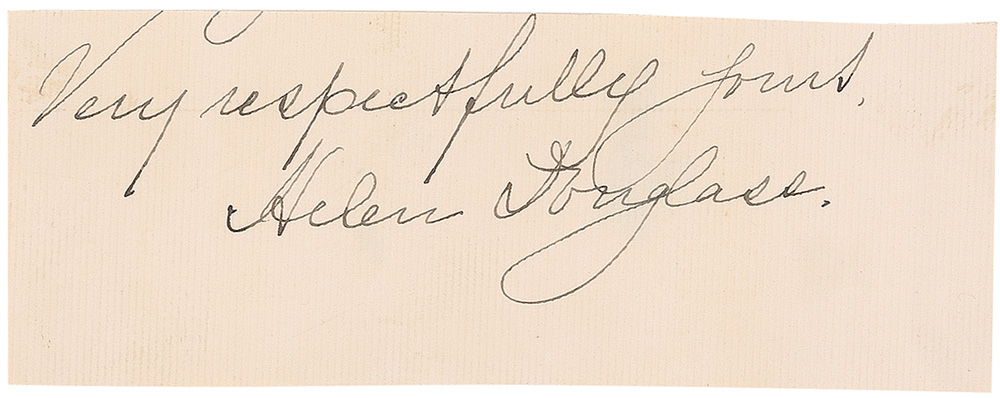 Very respectfully yours,
Helen Douglass.